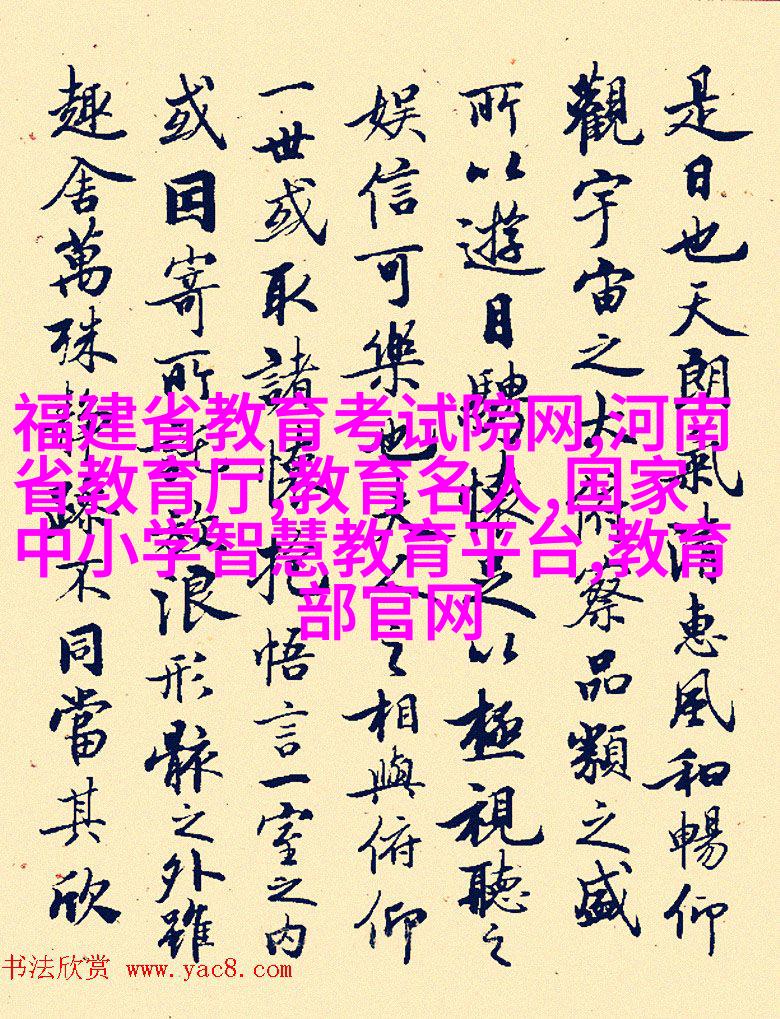 是日也天朗氣清惠風和暢仰
觀宇宙之大俯察品類之盛
所以遊目騁懷足以極視聽之
娱信可樂也夫人之相與俯仰
一世或取諸懷抱悟言一室之内
或因寄所託放浪形骸之外雖
趣舍萬殊靜躁不同當其欣
福建省教育考试院网,河南
省教育厅,教育名人,国家
中小学智慧教育平台,教育
部官网
书法欣赏 www.yac8.com